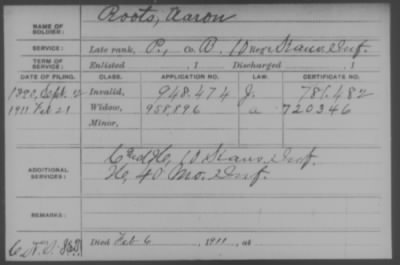 NAME OF SOLDIER: Roots, Aaron
SERVICE: Late rank, P, Co. B, 10 Kans. Inf.
TERM OF SERVICE: Enlisted , 1 Discharged , 1
DATE OF FILING. CLASS. APPLICATION NO. LAW. CERTIFICATE NO.
1890, Sept. 2 Invalid, 948.474 J. 781.482
1911 Feb 21 Widow, 958,896 a 720346
Minor,
ADDITIONAL SERVICES: H, 10 Kans. Inf.
H, 40 Mo. Inf.
REMARKS:
Died Feb 6 , 1911, at